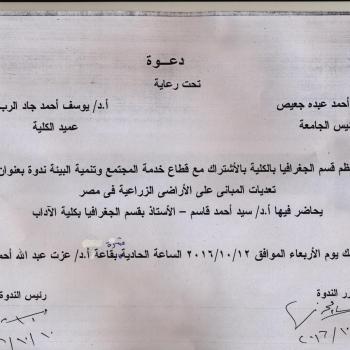 دعـــوة
تحت رعاية
أحمد عبده جعيص
أ.د/ يوسف أحمد جاد الرب
يس الجامعة
عميد الكلية
ظم قسم الجغرافيا بالكلية بالأشتراك مع قطاع خدمة المجتمع وتنمية البيئة ندوة بعنوان
تعديات المبانى على الأراضى الزراعية فى مصر
يحاضر فيها أ.د/ سيد أحمد قاسم – الأستاذ بقسم الجغرافيا بكلية الآداب
ك يوم الأربعاء الموافق ٢٠١٦/١٠/١٢ الساعة الحادية عشرة بقاعة أ.د/ عزت عبد الله أحمد
رر الندوة
رئيس الندوة